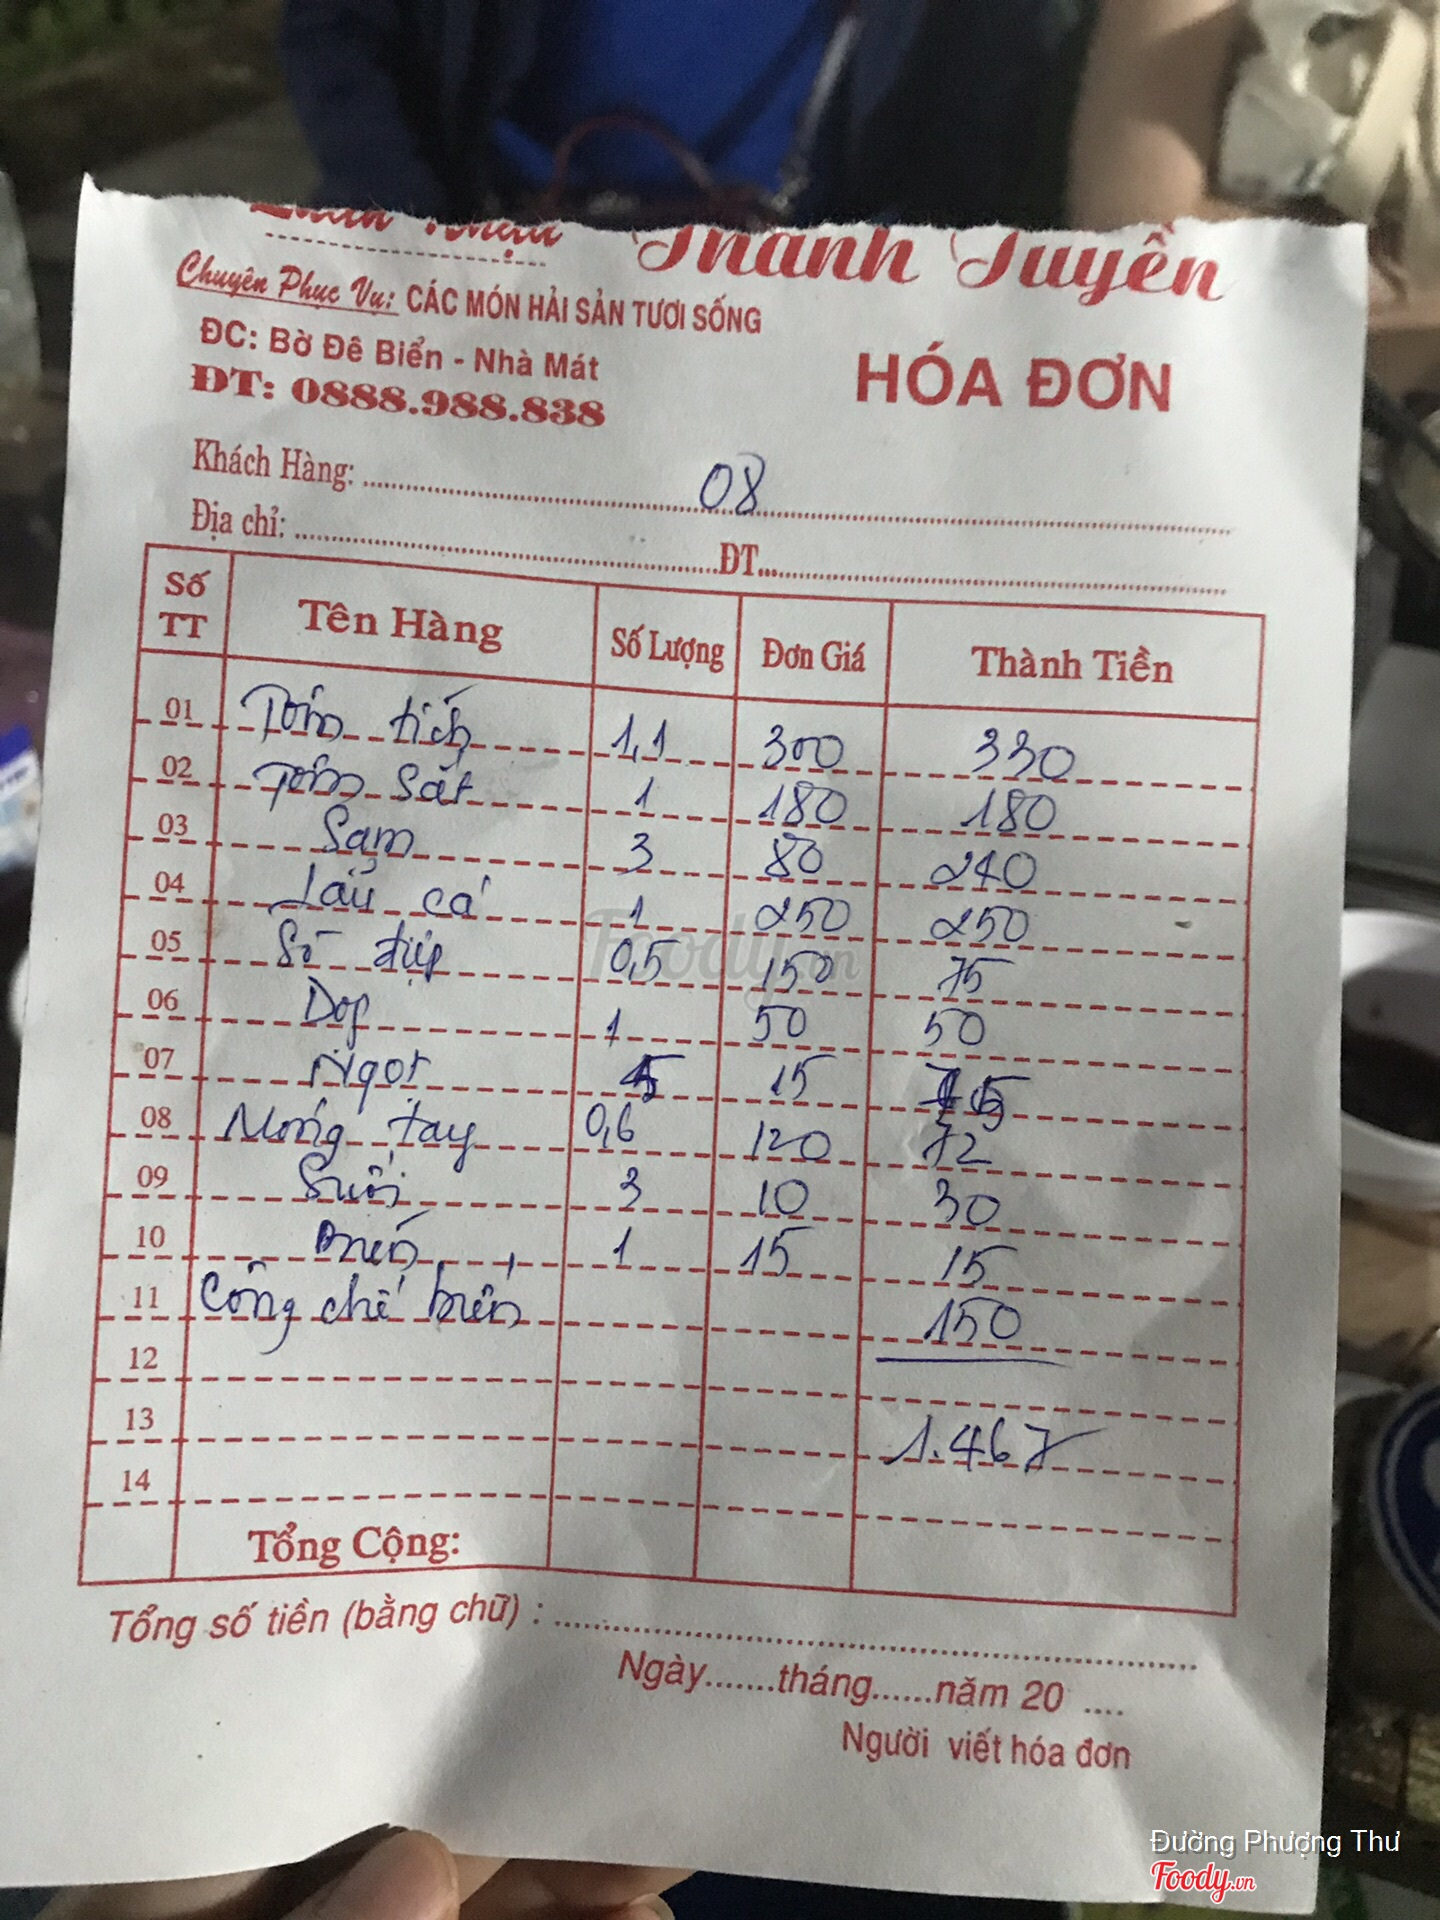 Thanh Tuyền
Chuyên Phục Vụ: CÁC MÓN HẢI SẢN TƯƠI SỐNG
ĐC: Bờ Đê Biển - Nhà Mát
HÓA ĐƠN
ĐT: 0888.988.838
Khách Hàng: 08
Địa chỉ: ĐT...
Số TT Tên Hàng Số Lượng Đơn Giá Thành Tiền
01 Tôm tích 1,1 300 330
02 Tôm sắt 1 180 180
03 Sam 3 80 240
04 Lẩu cá 1 250 250
05 Sò điệp 0,5 150 75
06 Dop 1 50 50
07 Ngọt 5 15 75
08 Móng tay 0,6 120 72
09 Suối 3 10 30
10 1 15 15
11 Công chế biến 150
12
13 1.467
14
Tổng Cộng:
Tổng số tiền (bằng chữ) :
Ngày.......tháng......năm 20 ....
Người viết hóa đơn
Foody.vn
Đường Phượng Thư
Foody.vn